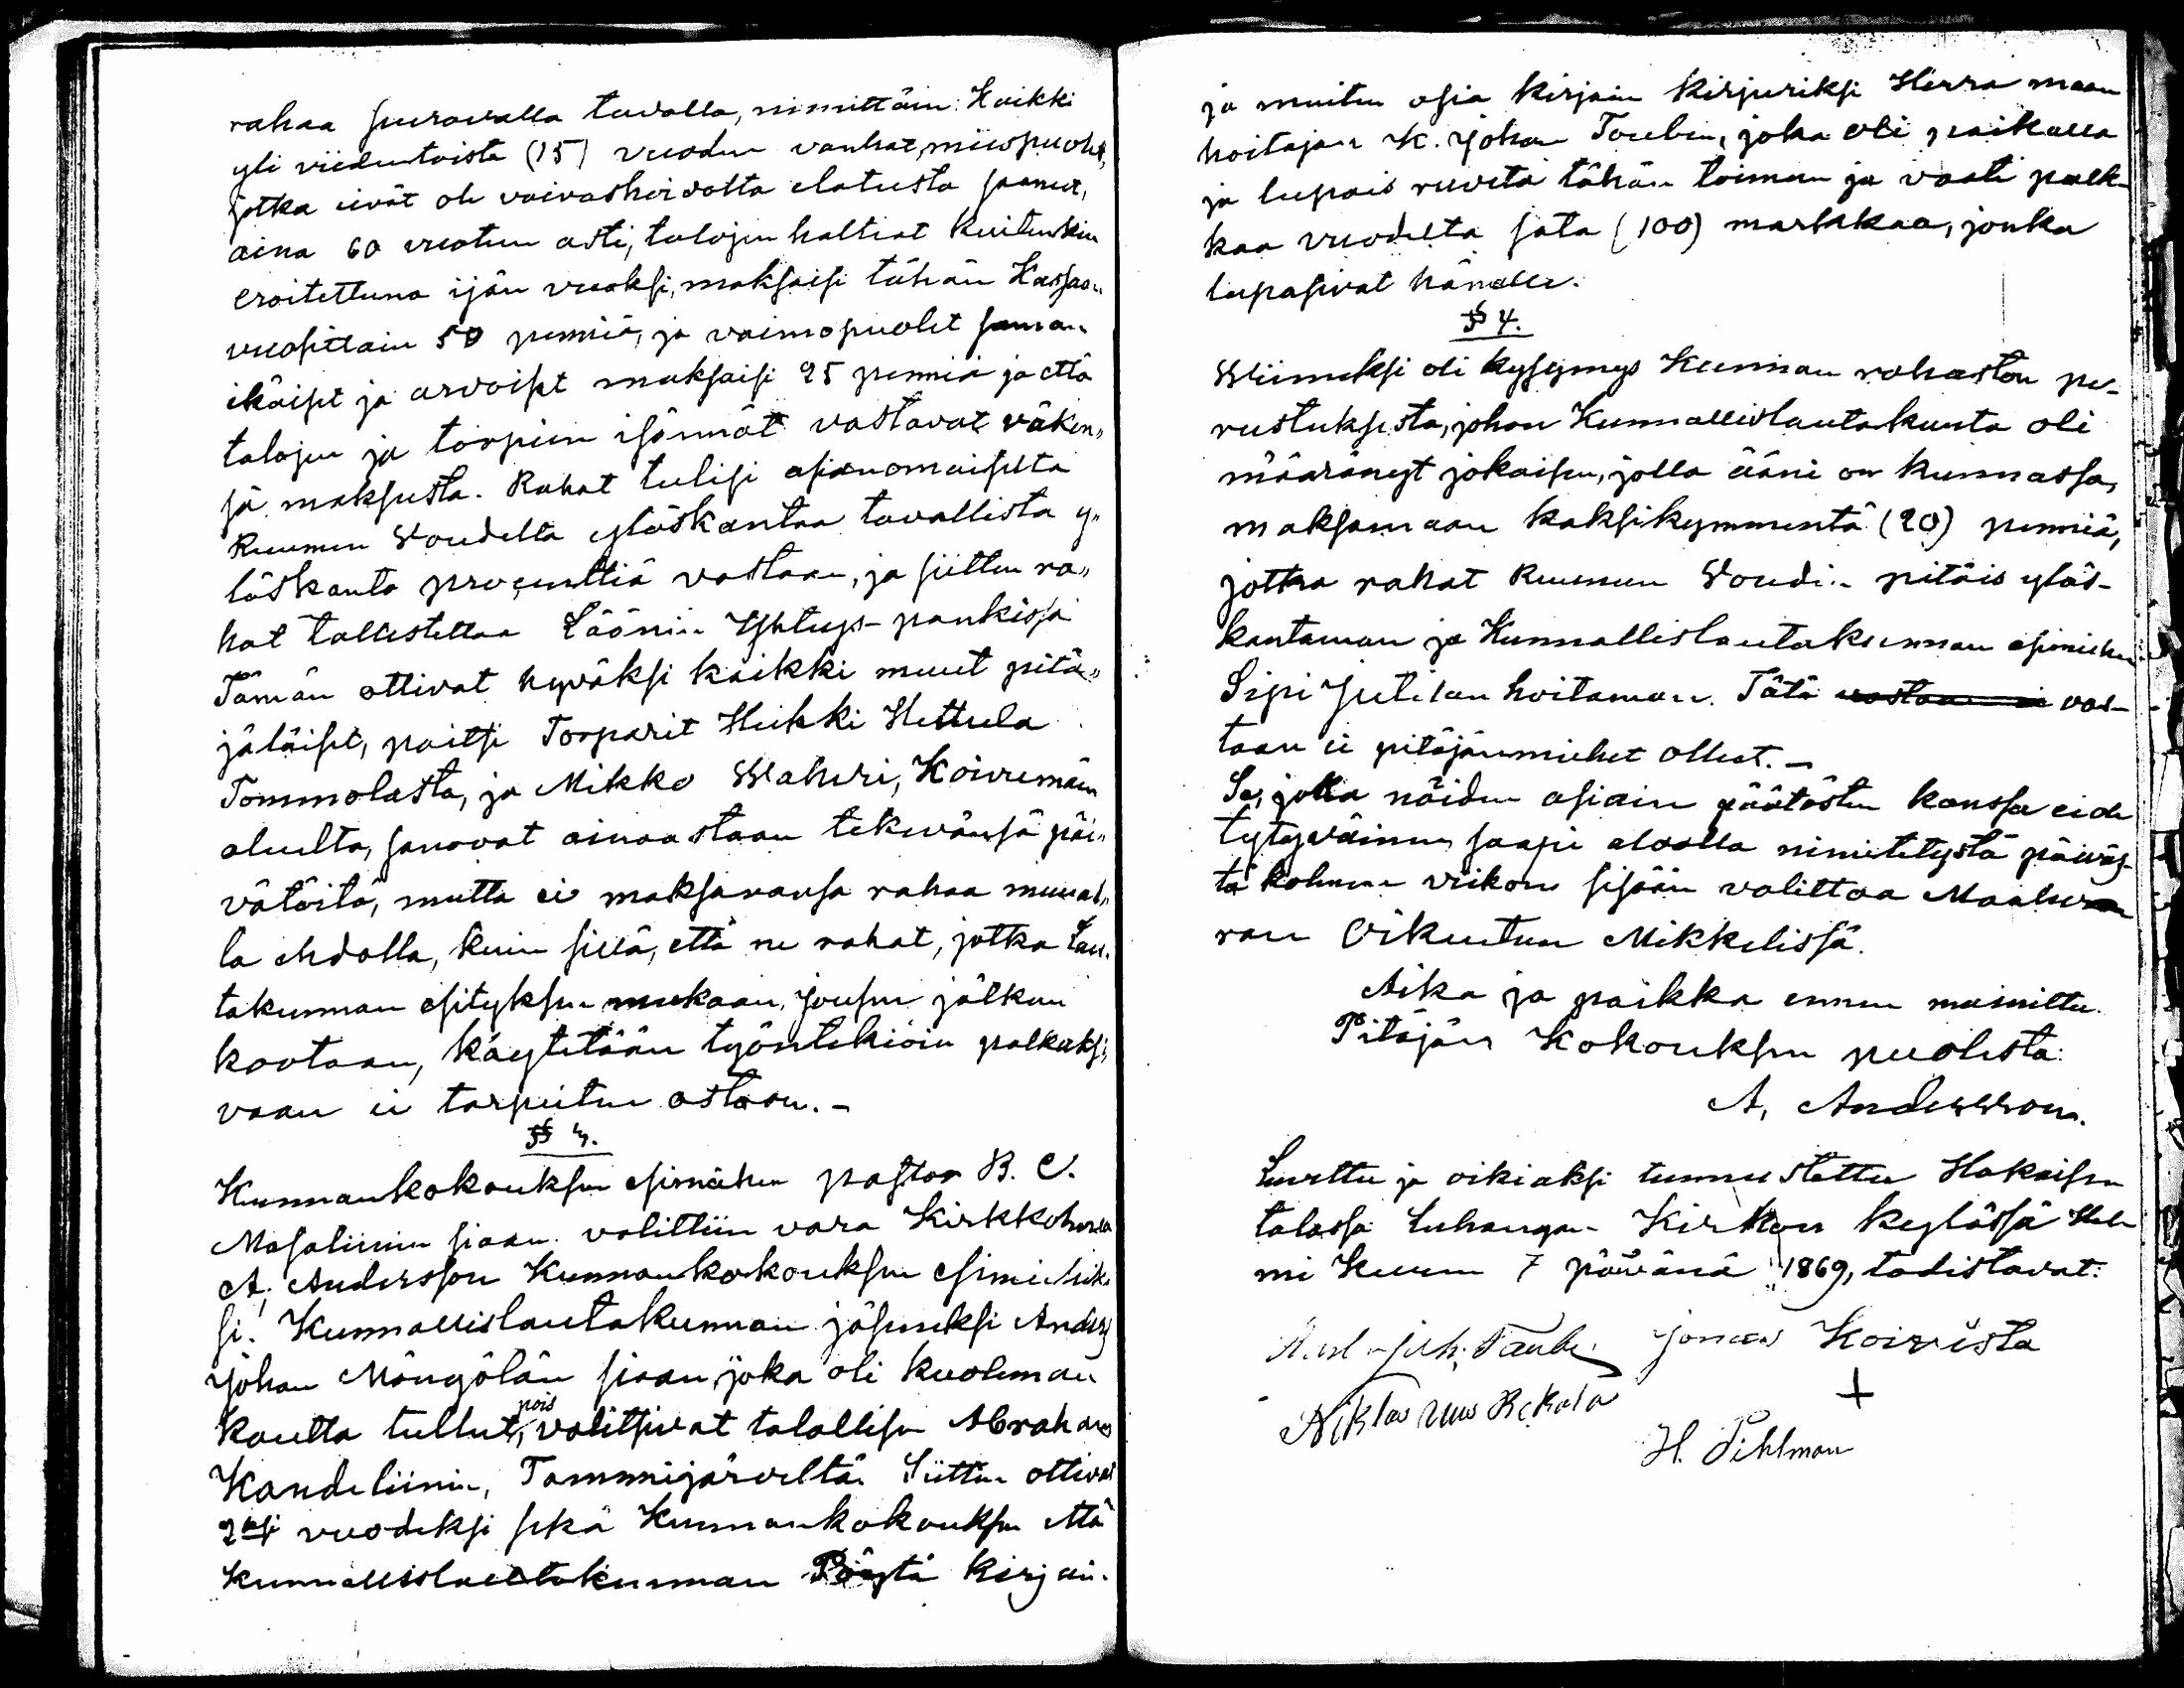 rahaa seuraavalla tavalla, nimittäin: Kaikki
yli viidentoista (15) vuoden vanhat, miespuolet,
jotka eivät ole vaivashoidolta elatusta saanet,
aina 60 vuoteen asti, talojen haltiat kuitenkin
eroitettuna ijän vuoksi, maksaisi tähän Kassaan
vuosittain 50 penniä, ja vaimopuolet saman
ikäiset ja arvoiset maksaisi 25 penniä ja että
talojen ja torpien isännät vastavat väken„
sä maksusta. Rahat tulisi asianomaiselta
Ruunun Voudelta ylöskantaa tavallista y„
löskanto procenttiä vastaan, ja siitten ra„
hat talletettaa Läänin Yhtiys-pankissa
Tämän ottivat hyväksi kaikki muut pitä„
jäläiset, paitsi Torparit Heikki Hettula
Tommolasta, ja Mikko Waheri, Koivumäen
aluelta, sanovat ainoastaan tekevänsä päi„
vätöitä, mutta ei maksavansa rahaa muual„
la ehdolla, kuin sillä, että ne rahat, jotka Lau„
takunnan esityksen mukaan, jousen jälkeen
kootaan, käytetään työntekiöin palkaksi,
vaan ei tarpeiten ostaon.-
§ 3.
Kunnankokouksen esimiehen pastor B. C.
Masalinin siaan valittiin vara Kirkkoherra
A. Andersson Kunnankokouksen esimiehek„
si. Kunnallislautakunnan jäseneksi Anders
Johan Mängölän siaan, joka oli kuoleman
kautta tullut pois, valittivat talollisen Abraham
Kandeliinin, Tammijärveltä. Siitten ottivat
2ksi vuodeksi sekä Kunnankokouksen että
Kunnallislautakunnan Pöytä kirjain
ja muiten asia kirjain kirjuriksi Herra maan
hoitajan K. Johan Tauben, joka oli paikalla
ja lupais ruveta tähän toimeen ja vaati palk-
kaa vuodelta sata (100) markkaa, jonka
lupasivat hänelle.
§ 4.
Wiimeksi oli kysymys Kunnan rahaston pe-
rustuksesta, johon Kunnallislautakunta oli
määränyt jokaisen, jolla ääni on kunnassa,
maksamaan kaksikymmentä (20) penniä,
jotka rahat Ruunun Voudin pitäis ylös-
kantaman ja Kunnallislautakunnan esimiehen
Sipi Jutilan hoitaman. Tätä vastaan ei vas-
taan ei pitäjänmiehet olleet.-
Se, jolla näiden asiain päätösten kanssa ei ole
tytyväinen, saapi alaalla nimitetystä päiväs-
tä kolmen viikon sisään valittaa Maaher
ran Virkuntaan Mikkelissä.
Aika ja paikka ennen mainittu.
Pitäjän Kokouksen puolesta:
A. Andersson.
Luettu ja oikiaksi tunnustettu Hakaisen
talossa Luhangan Kirkon kylässä Hel
mi Kuun 7 päivänä 1869, todistavat:
Karl Joh. Taube Jonas Koivista
Niklas Uus Rekola +
H. Pihlman